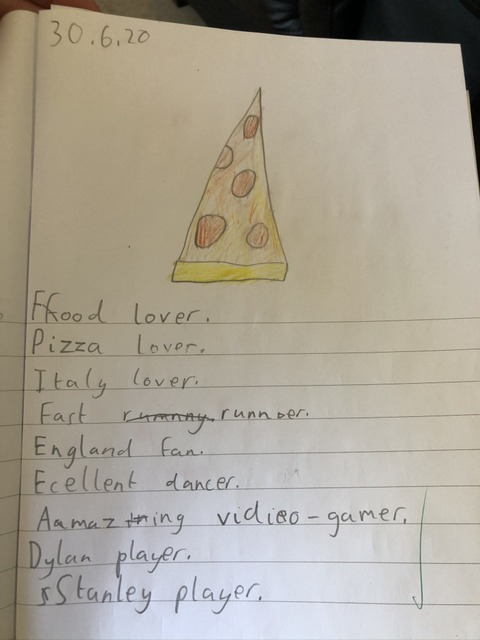 30.6.20
Ffood lover.
Pizza lover.
Italy lover.
Fast runner.
England fan.
Ecellent dancer.
Aamazing vidieo-gamer.
Dylan player.
Stanley player.